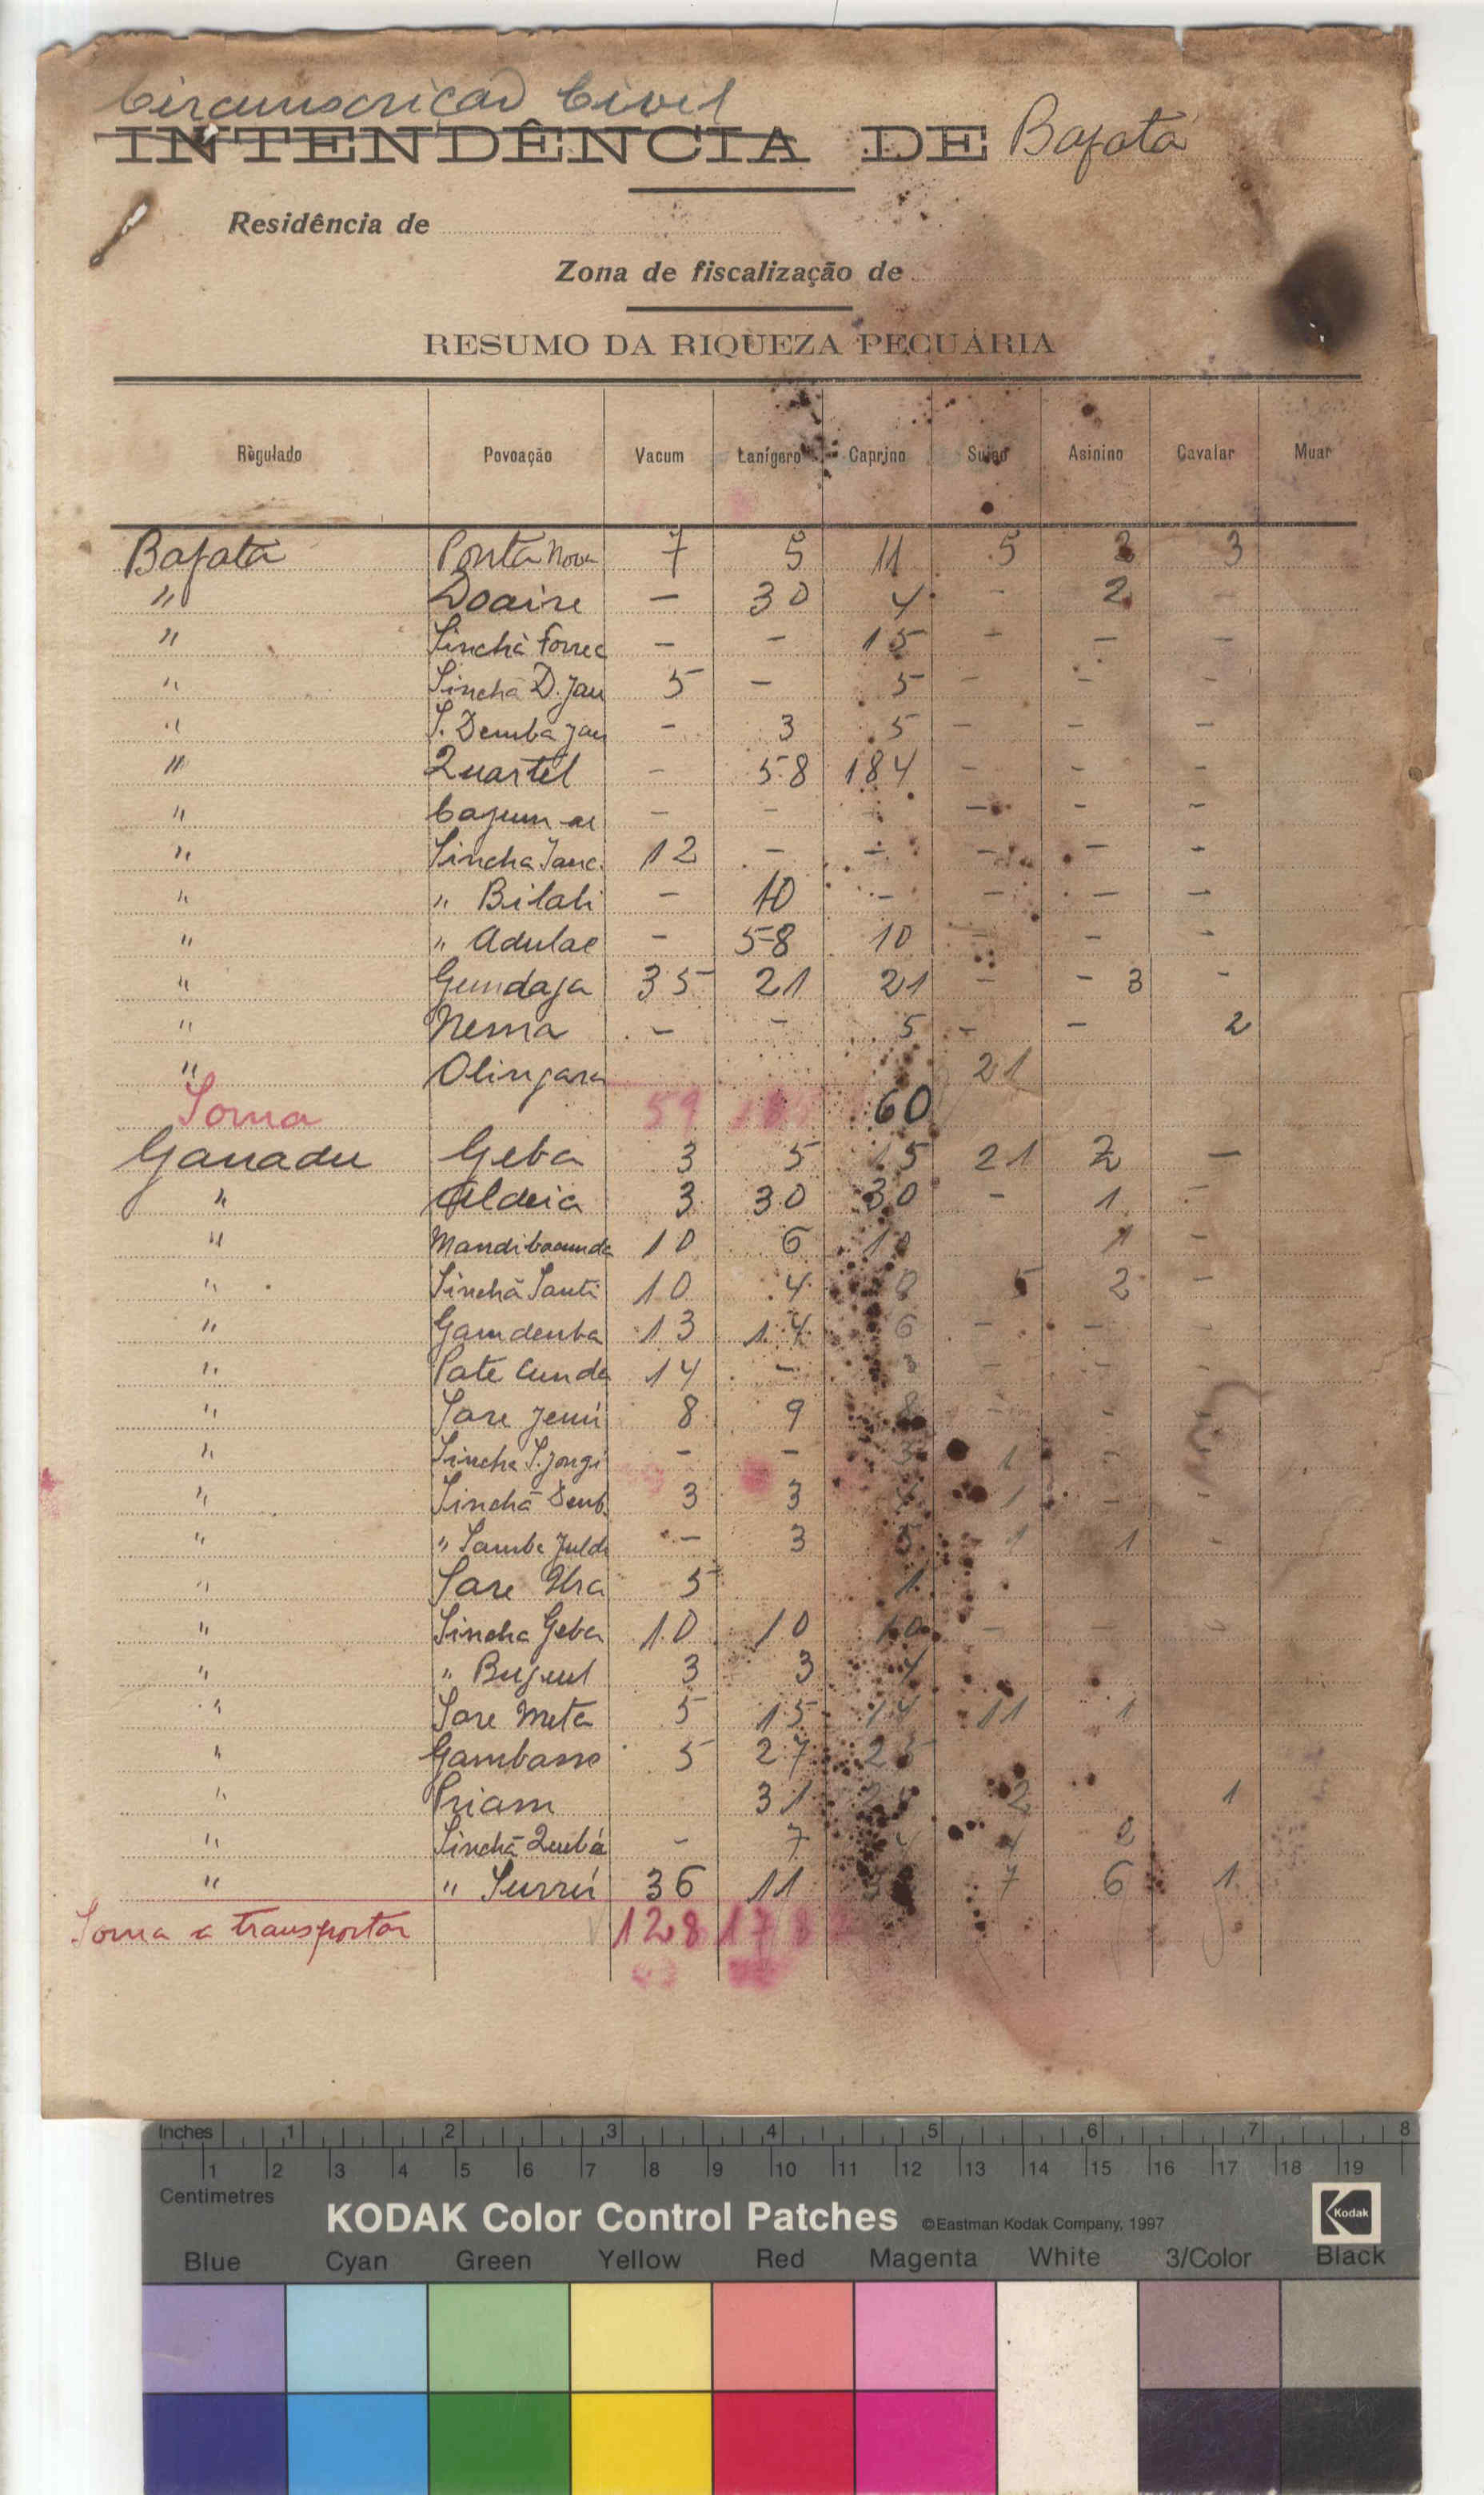 Circunscrição Civil
INTENDÊNCIA DE Bafatá
Residência de
Zona de fiscalização de
RESUMO DA RIQUEZA PECUÁRIA
Régulado Povoação Vacum Lanígero Caprino Suino Asinino Cavalar Muar
Bafata Ponta Nova 7 5 11 5 3
" Doaire — 30 4 - 2 -
" Sinchã Forrea — - 15 - - -
" Sinchã D. Jau 5 - 5 - - -
" S. Demba Jau - 3 5 - - -
" Quartel - 58 184 - - -
" - - - - -
" Sincha Janc. 12 - - - - -
" " Bilali - 10 - - - -
" " Adulae - 58 10 - - -
" Gundaga 35 21 21 - - 3 -
" Nema - - 5 - - 2
" Olingara 21
Soma 59 60
Ganadu Geba 3 5 15 21 2 —
" Aldeia 3 30 30 - 1 -
" Mandibacunda 10 6 1 -
" Sinchã Santi 10 4 5 2 -
" Gamdemba 13 14 6 - - -
" Pate Cunda 14 - 3 - - -
" Sare Jemi 8 9 8 - - -
" Sincha S. Jongi - - 1 - -
" Sinchã Demb. 3 3 1 - -
" " Samba Julde - 3 5 1 1 -
" Sare Ura 5 1
" Sincha Geba 10 10 10 - - -
" " Bujeul 3 3 4
" Sare Meta 5 15 14 11 1
" Gambasse 5 27
" Priam 31 2 1
" Sinchã Quebá - 7 4 4
" " Surrui 36 11 7 6 1
Soma a transportar 128 178
Inches 1 2 3 4 5 6 7 8
1 2 3 4 5 6 7 8 9 10 11 12 13 14 15 16 17 18 19
Centimetres
KODAK Color Control Patches ©Eastman Kodak Company, 1997 Kodak
Blue Cyan Green Yellow Red Magenta White 3/Color Black